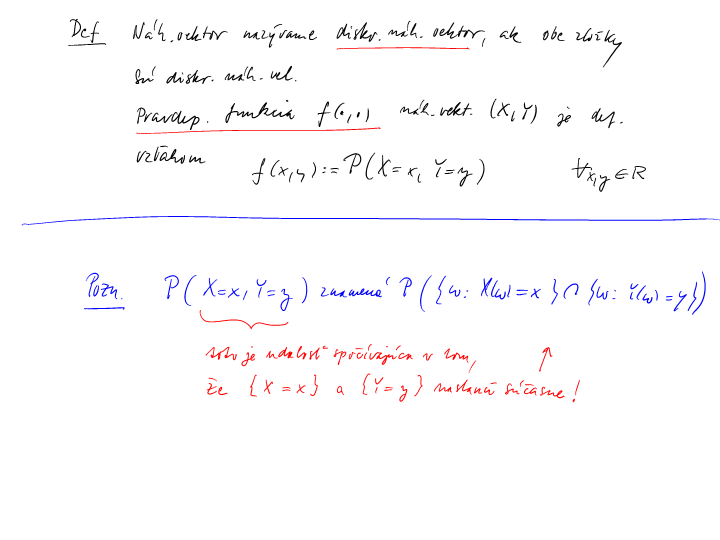 Def Náh. vektor nazývame diskr. náh. vektor, ak obe zložky
sú diskr. náh. vel.
Pravdep. funkcia f(·,·) náh. vekt. (X,Y) je def.
vzťahom f(x,y) := P(X=x, Y=y) ∀x,y ∈ R
Pozn. P(X=x, Y=y) znamená P({ω: X(ω)=x} ∩ {ω: Y(ω)=y})
toto je udalosť spočívajúca v tom,
že {X=x} a {Y=y} nastanú súčasne!